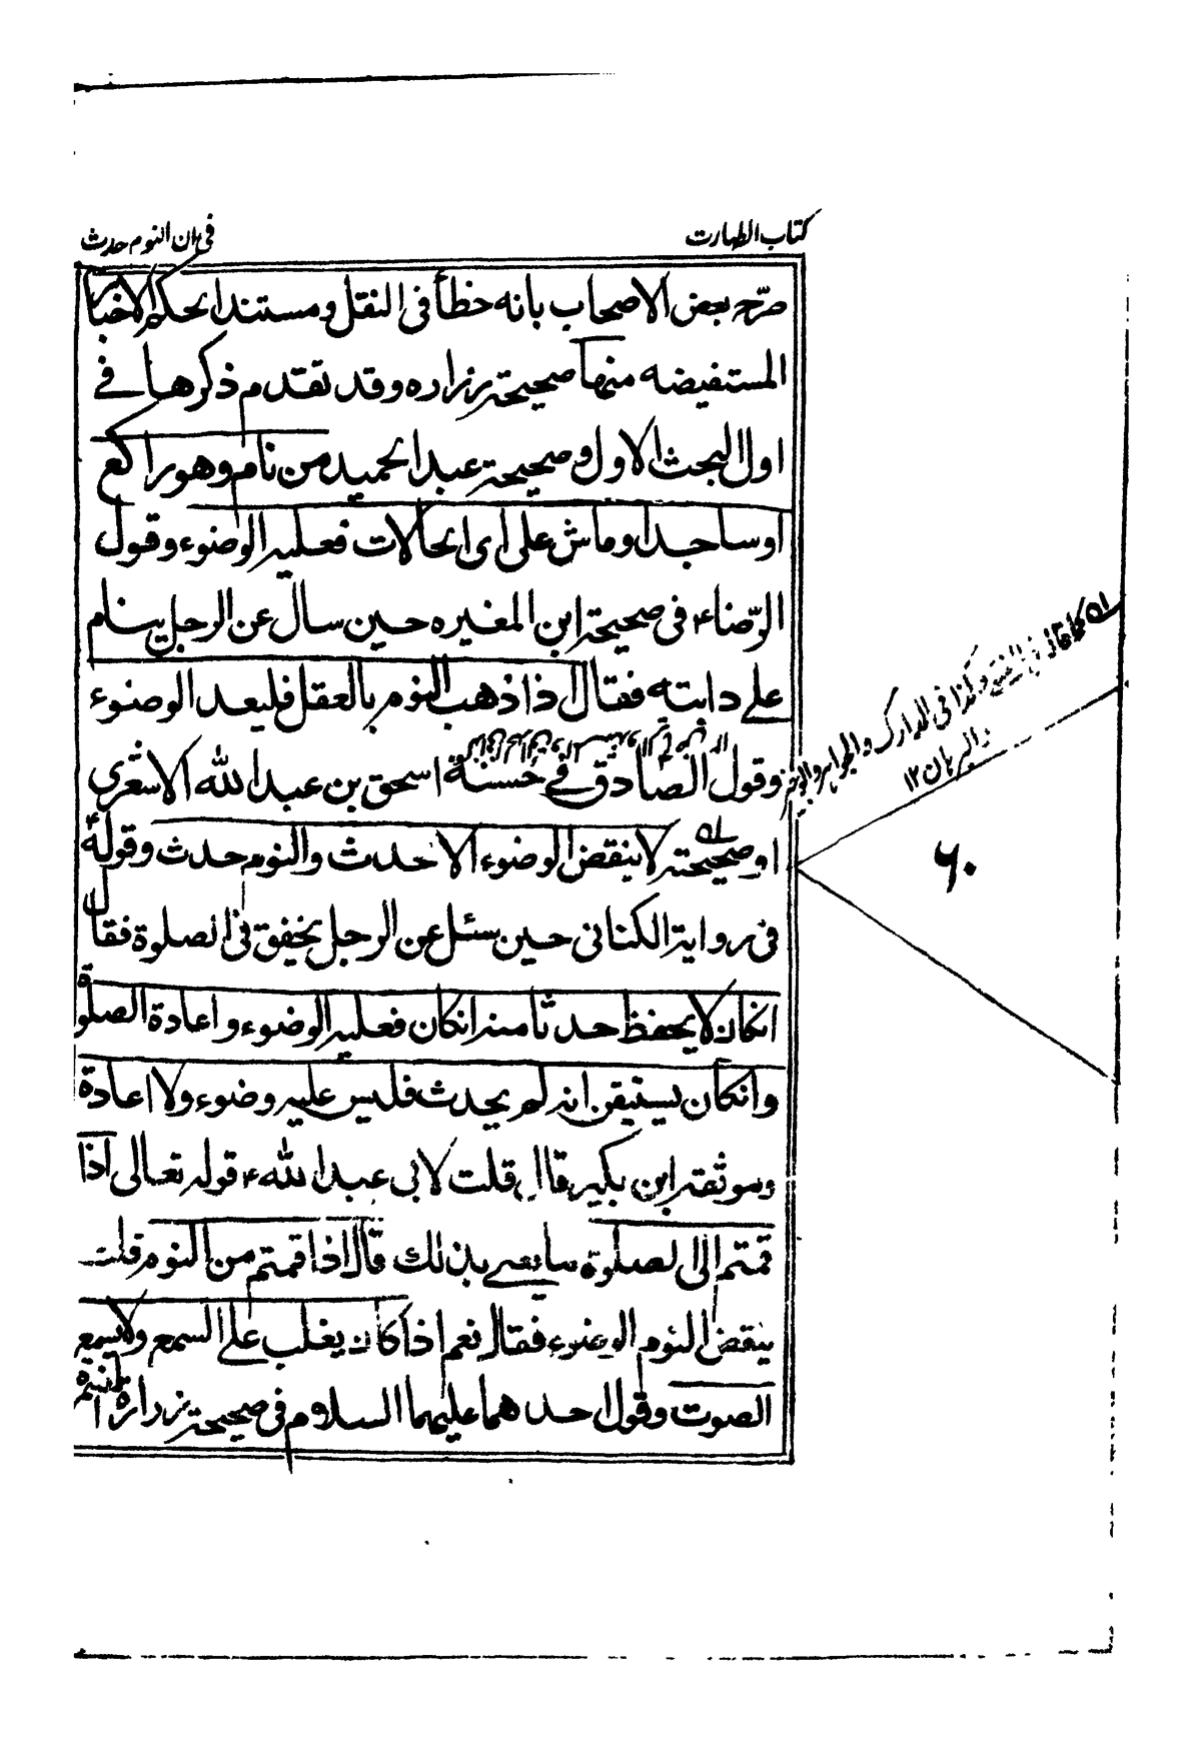 كتاب الطهارت
فى ان النوم حدث
صرّح بعض الاصحاب بانه خطأ فى النقل ومستند الحكم الاخبار
المستفيضه منها صحيحة زراره وقد تقدم ذكرها فے
اول البحث الاول وصحيحة عبد الحميد من نام وهو راكع
او ساجد او ماش على اى الحالات فعليه الوضوء وقول
الرّضاء ۴ فى صحيحة ابن المغيره حين سال عن الرجل ينام
علے دابته فقال اذا ذهب النوم بالعقل فليعد الوضوء
وقول الصّادق فے حَسنة اسحق بن عبد الله الاشعرى
او صحيحته لا ينقض الوضوء الا حدث والنوم حدث وقوله۴
فى رواية الكنانى حين سئل عن الرجل يخفق فى الصلوة فقال
انكان لا يحفظ حدثا منه انكان فعليه الوضوء واعادة الصلوة
وانكان يستيقن انه لم يحدث فليس عليه وضوء ولا اعادة
وموثقة ابن بكير قال قلت لابى عبد الله ۴ قوله تعالى اذا
قمتم الى الصلوة ما يعنے بذلك قال اذا قمتم من النوم قلت
ينقض النوم الوضوء فقال نعم اذا كان يغلب على السمع ولا يسمع
الصوت وقول احدهما عليهما السلام فى صحيحة زرارة
وكذا فى المدارك والجواهر
والبرهان ۱۲
۶۰